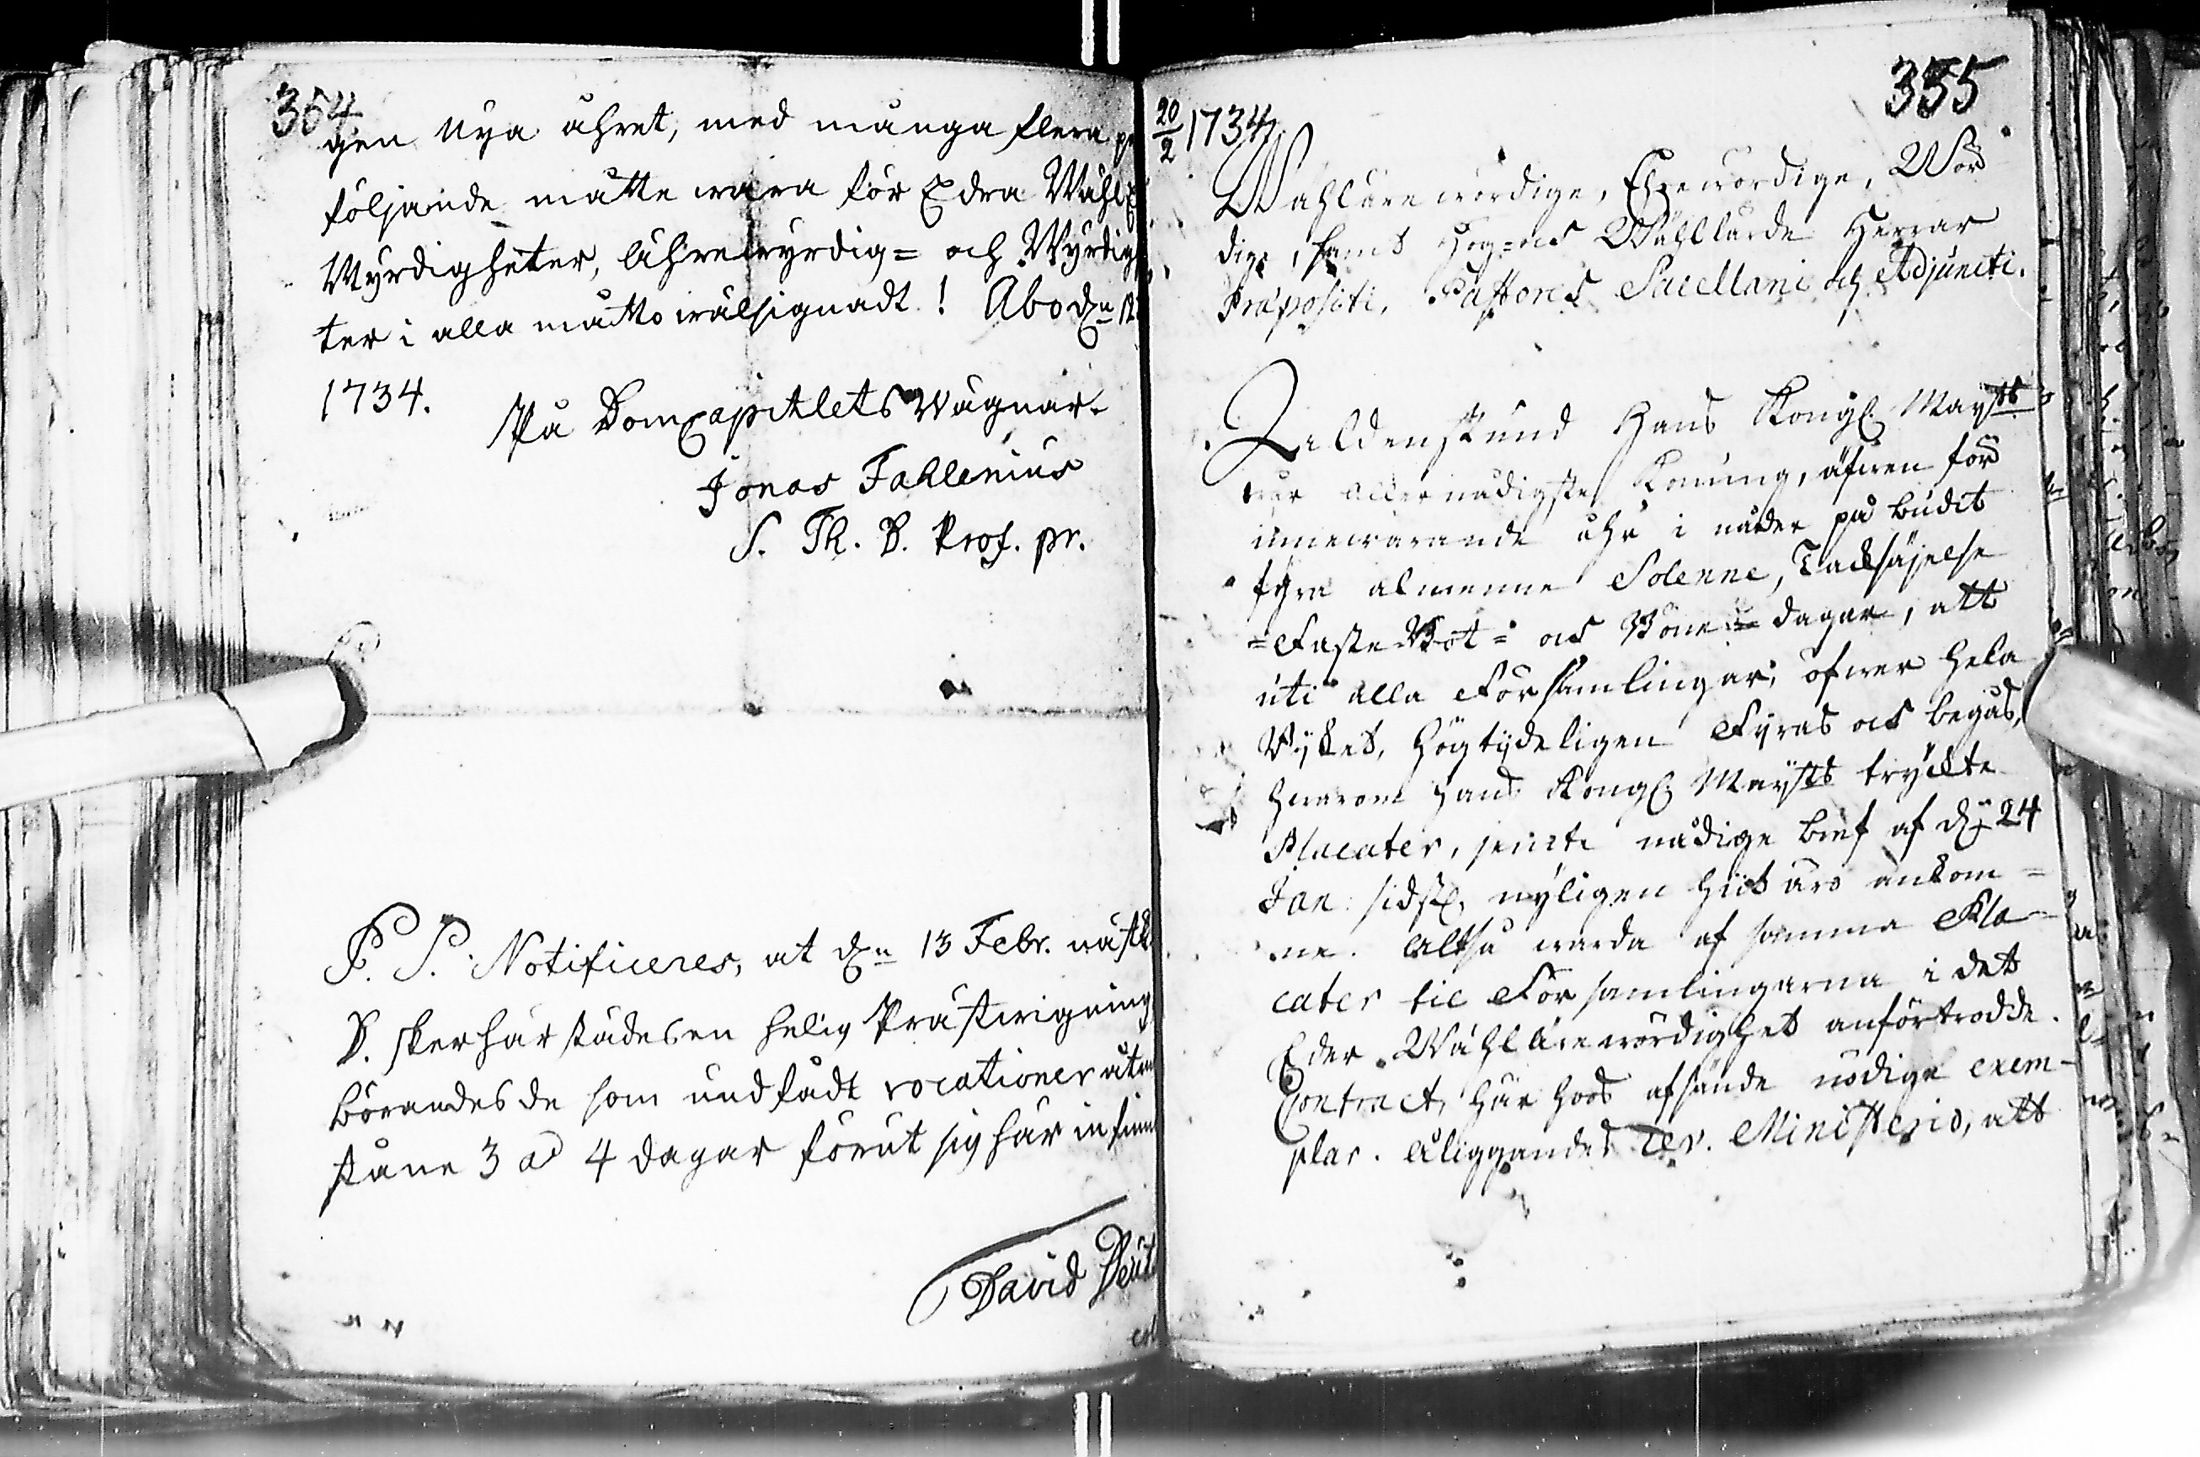 354
gen nya åhret, med många flera
följande måtte wara för Edra Wähl
Wyrdigheter, Ährewyrdig= och Wyrdig
ter i alla måtto wälsignadt! Åbo dn
1734.
På DomCapitlets wägnar.
Jonas Fahlenius
S. Th. D. Prof. pr.
P. S. Notificeres, at dn 13 Febr. nästk
D. sker här städes en helig Prästwigning
börandes de som undfådt vocationer
3 a 4 dagar förut sig här infinn
David Deut
355
20/2 1734
Wählärewördige, Ehrewördige, Wör
dige, samt Hög= och Wähllärde Herrar
Præpositi, Pastores Sacellani och Adjuncti.
Aldenstund Hans Kongl. Maysts
wår allernådigste Konung, äfwen för
innewarande åhr i nåder på budit
fyra almenne Solenne, Tacksäjelse
=Faste Bot= och Böne= dagar, att
uti alla Församlingar, öfwer hela
Ryket, högtydeligen Fyras och begås,
hwarom hans Kongl. Maysts tryckte
Placater, jemte nådige bref af dn 24
Jan: sidstl. nyligen hiit äro ankom=
ne. Altså warda af samma Pla=
cater til Församlingarna i det
Eder Wählärewördighet anförtrodde
Contract, här hoos afsände nödige exem-
plar. Åliggandes Rev. Ministerio, att